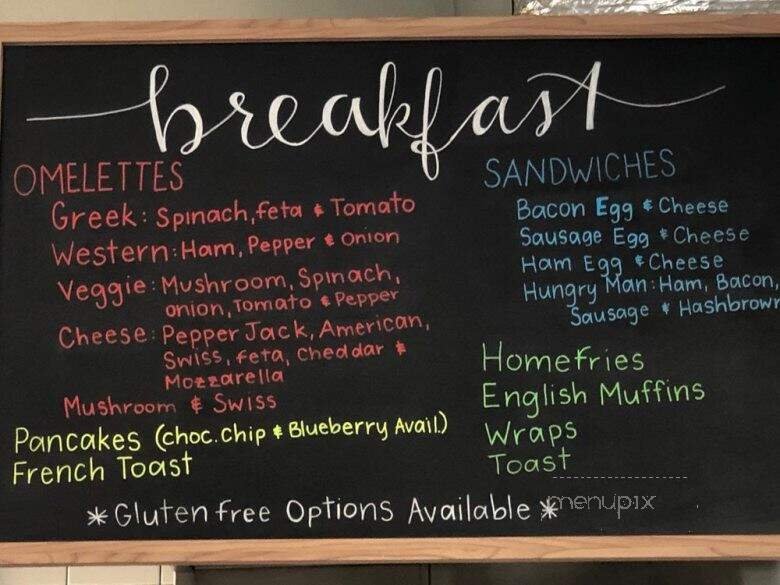 breakfast
OMELETTES
Greek: Spinach, feta & Tomato
Western: Ham, Pepper & Onion
Veggie: Mushroom, Spinach,
onion, Tomato & Pepper
Cheese: Pepper Jack, American,
Swiss, feta, Cheddar &
Mozzarella
Mushroom & Swiss
Pancakes (choc. chip & Blueberry Avail.)
French Toast
SANDWICHES
Bacon Egg & Cheese
Sausage Egg & Cheese
Ham Egg & Cheese
Hungry Man: Ham, Bacon,
Sausage & Hashbrown
Homefries
English Muffins
Wraps
Toast
* Gluten free Options Available *
menupix